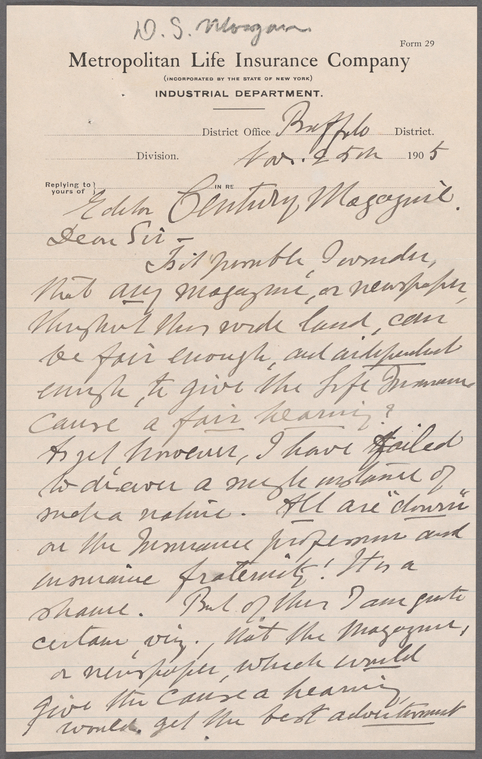 D. S. Morgan
Form 29
Metropolitan Life Insurance Company
(INCORPORATED BY THE STATE OF NEW YORK)
INDUSTRIAL DEPARTMENT.
District Office Buffalo District.
Division. Nov. 25th 1905
Replying to yours of } IN RE
Editor Century Magazine.
Dear Sir—
Is it possible, I wonder,
that any magazine, or newspaper,
throughout this wide land, can
be fair enough, and independent
enough, to give the Life Insurance
cause a fair hearing?
As yet however, I have failed
to discover a single instance of
such a nature. All are "down"
on the Insurance profession and
insurance fraternity! It is a
shame. But of this I am quite
certain, viz., that the magazine,
or newspaper, which would
give the cause a hearing,
would get the best advertisement